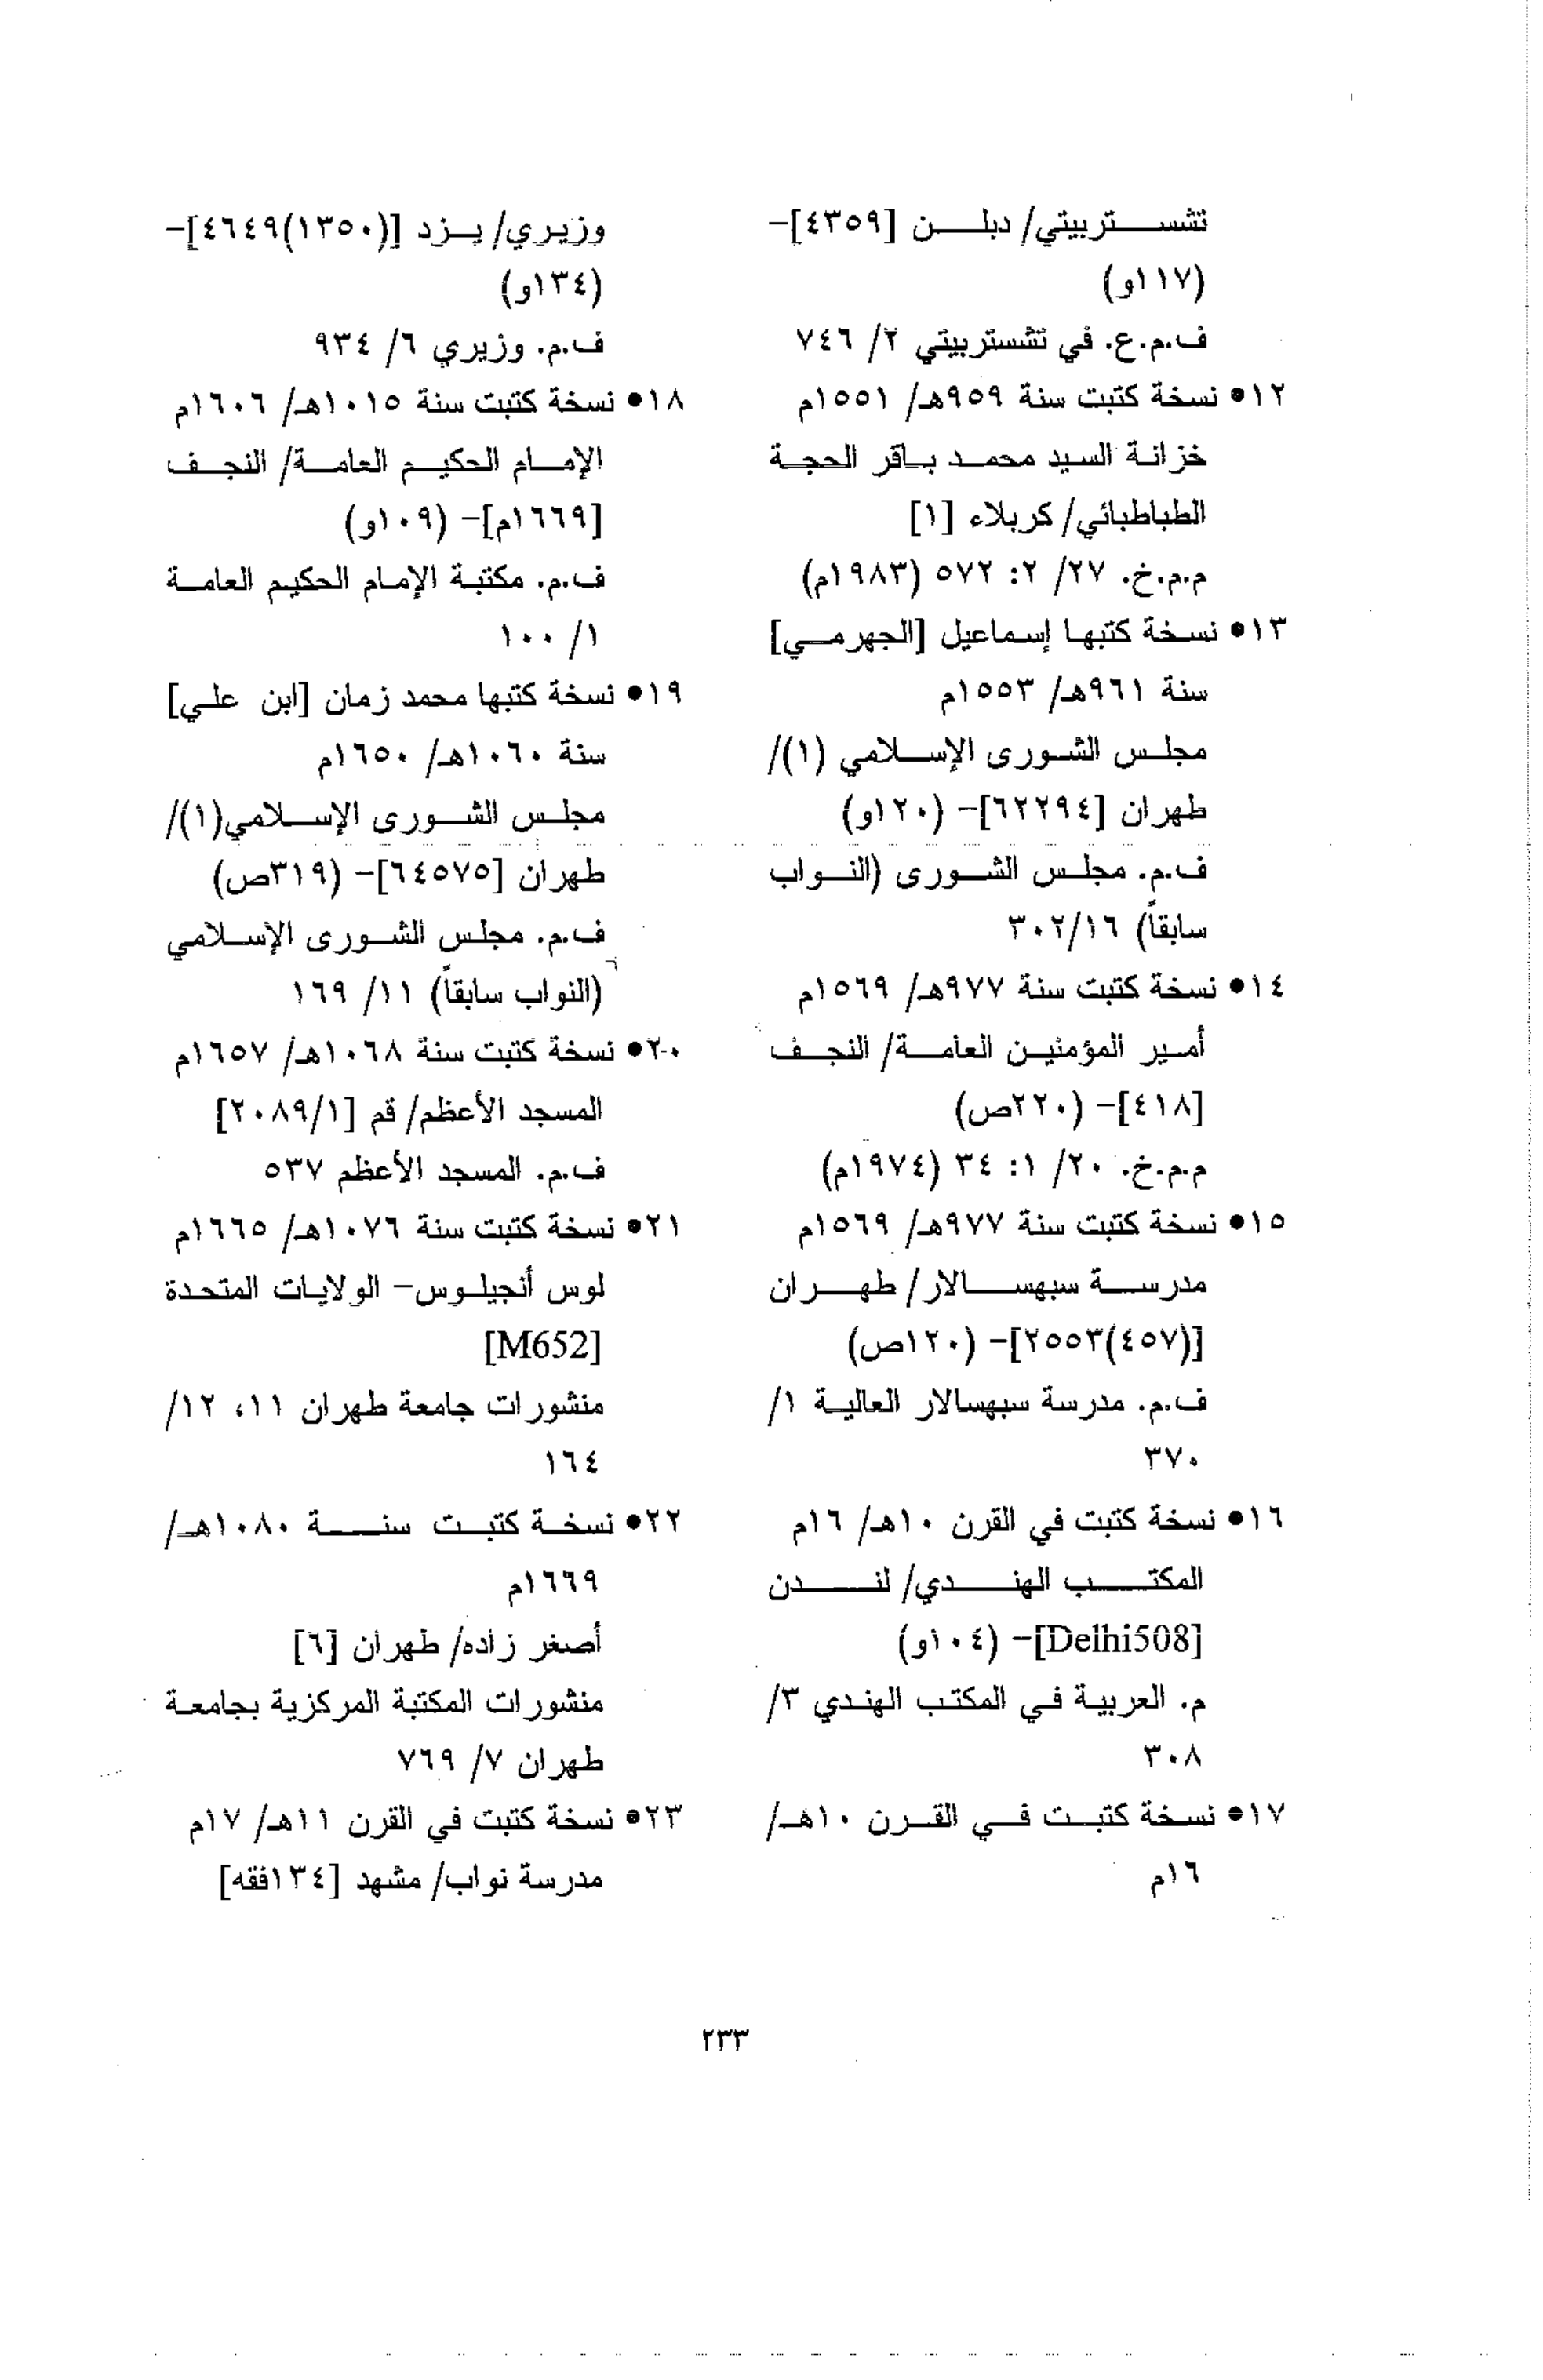 تشستربيتي/ دبلن [٤٣٥٩]-
(١١٧و)
ف.م.ع. في تشستربيتي ٢/ ٧٤٦
١٢• نسخة كتبت سنة ٩٥٩هـ/ ١٥٥١م
خزانة السيد محمد باقر الحجة
الطباطبائي/ كربلاء [١]
م.م.خ. ٢٧/ ٢: ٥٧٢ (١٩٨٣م)
١٣• نسخة كتبها إسماعيل [الجهرمي]
سنة ٩٦١هـ/ ١٥٥٣م
مجلس الشورى الإسلامي (١)/
طهران [٦٢٢٩٤]- (١٢٠و)
ف.م. مجلس الشورى (النواب
سابقاً) ٣٠٢/١٦
١٤• نسخة كتبت سنة ٩٧٧هـ/ ١٥٦٩م
أمير المؤمنين العامة/ النجف
[٤١٨]- (٢٢٠ص)
م.م.خ. ٢٠/ ١: ٣٤ (١٩٧٤م)
١٥• نسخة كتبت سنة ٩٧٧هـ/ ١٥٦٩م
مدرسة سبهسالار/ طهران
[(٤٥٧)٢٥٥٣]- (١٢٠ص)
ف.م. مدرسة سبهسالار العالية ١/
٣٧٠
١٦• نسخة كتبت في القرن ١٠هـ/ ١٦م
المكتب الهندي/ لندن
[Delhi508]- (١٠٤و)
م. العربية في المكتب الهندي ٣/
٣٠٨
١٧• نسخة كتبت في القرن ١٠هـ/
١٦م
وزيري/ يزد [(١٣٥٠)٤٦٤٩]-
(١٣٤و)
ف.م. وزيري ٦/ ٩٣٤
١٨• نسخة كتبت سنة ١٠١٥هـ/ ١٦٠٦م
الإمام الحكيم العامة/ النجف
[١٦٦٩م]- (١٠٩و)
ف.م. مكتبة الإمام الحكيم العامة
١/ ١٠٠
١٩• نسخة كتبها محمد زمان [ابن علي]
سنة ١٠٦٠هـ/ ١٦٥٠م
مجلس الشورى الإسلامي(١)/
طهران [٦٤٥٧٥]- (٣١٩ص)
ف.م. مجلس الشورى الإسلامي
(النواب سابقاً) ١١/ ١٦٩
٢٠• نسخة كتبت سنة ١٠٦٨هـ/ ١٦٥٧م
المسجد الأعظم/ قم [٢٠٨٩/١]
ف.م. المسجد الأعظم ٥٣٧
٢١• نسخة كتبت سنة ١٠٧٦هـ/ ١٦٦٥م
لوس أنجيلوس- الولايات المتحدة
[M652]
منشورات جامعة طهران ١١، ١٢/
١٦٤
٢٢• نسخة كتبت سنة ١٠٨٠هـ/
١٦٦٩م
أصغر زاده/ طهران [٦]
منشورات المكتبة المركزية بجامعة
طهران ٧/ ٧٦٩
٢٣• نسخة كتبت في القرن ١١هـ/ ١٧م
مدرسة نواب/ مشهد [١٣٤فقه]
٢٣٣